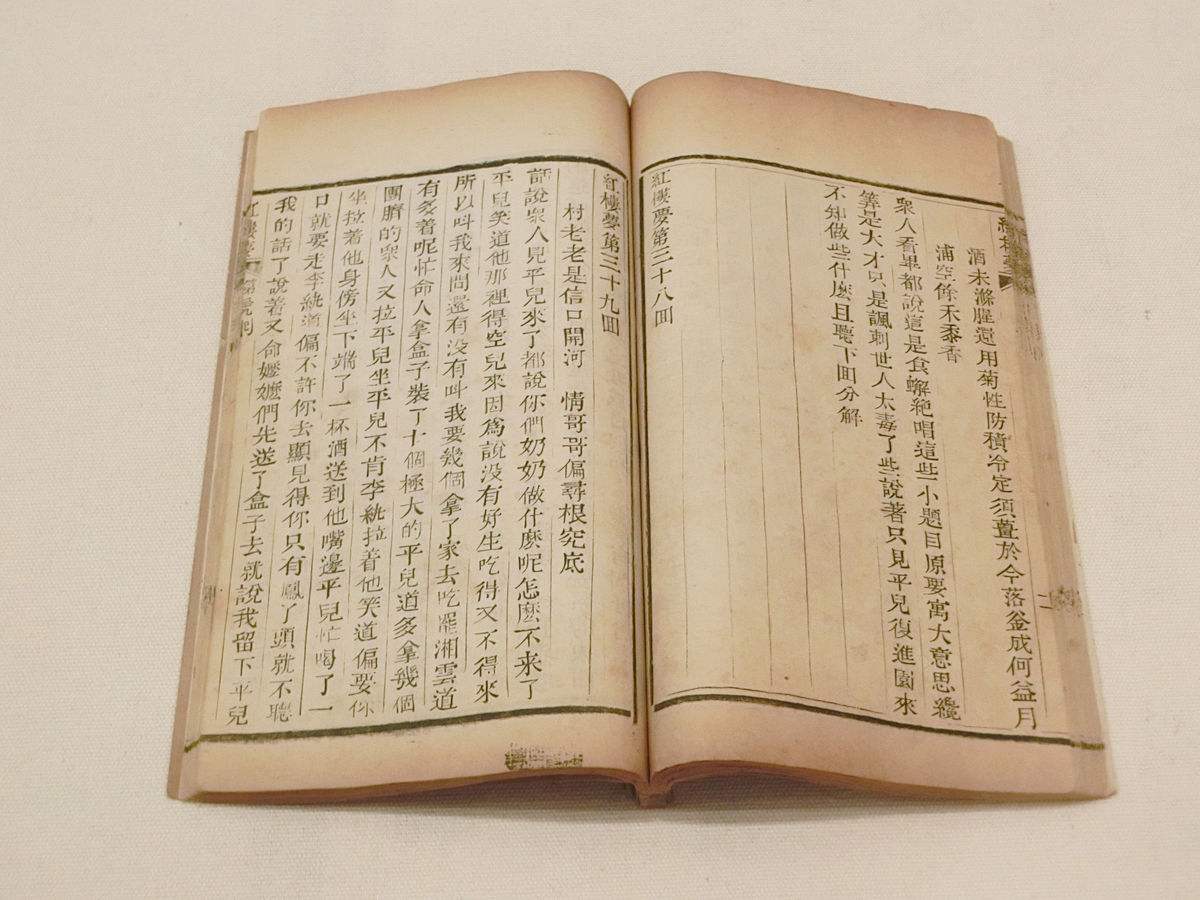 酒未滌腥還用菊性防積冷定須薑於今落釜成何益月
浦空餘禾黍香
衆人看畢都說這是食蠏絶唱這些小題目原要寓大意思纔
筭是大才只是諷刺世人太毒了些說著只見平兒復進園來
不知做些什麽且聽下囬分解
紅樓夢第三十八囬
紅樓夢第三十九囬
村老老是信口開河 情哥哥偏尋根究底
話說衆人見平兒來了都說你們奶奶做什麽呢怎麽不来了
平兒笑道他那裡得空兒來因爲說没有好生吃得又不得來
所以叫我來問還有没有叫我要幾個拿了家去吃罷湘雲道
有多着呢忙命人拿盒子裝了十個極大的平兒道多拿幾個
團臍的衆人又拉平兒坐平兒不肯李紈拉着他笑道偏要你
坐拉着他身傍坐下端了一杯酒送到他嘴邊平兒忙喝了一
口就要走李紈道偏不許你去顯見得你只有鳳丫頭就不聽
我的話了說着又命嬷嬷們先送了盒子去就說我留下平兒
紅樓夢